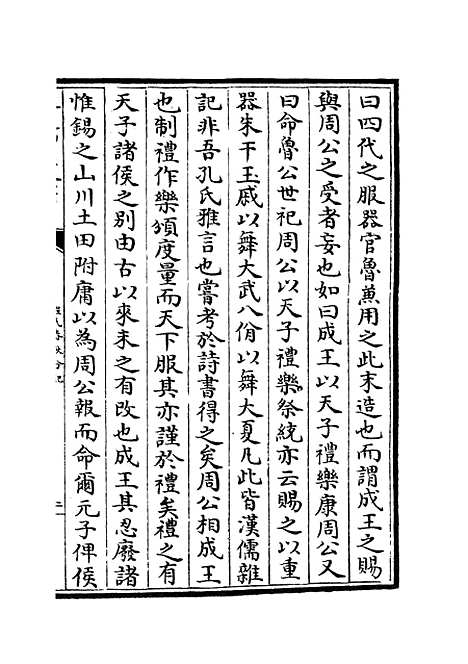 曰四代之服器官魯蒹用之此末造也而謂成王之賜
與周公之受者妄也如曰成王以天子禮樂康周公又
曰命魯公世祀周公以天子禮樂祭統亦云賜之以重
器朱干玉戚以舞大武八佾以舞大夏凡此皆漢儒雜
記非吾孔氏雅言也嘗考於詩書得之矣周公相成王
也制禮作樂頒度量而天下服其亦謹於禮矣禮之有
天子諸侯之别由古以來未之有改也成王其忍廢諸
惟錫之山川土田附庸以為周公報而命爾元子俾侯
程氏春秋分記